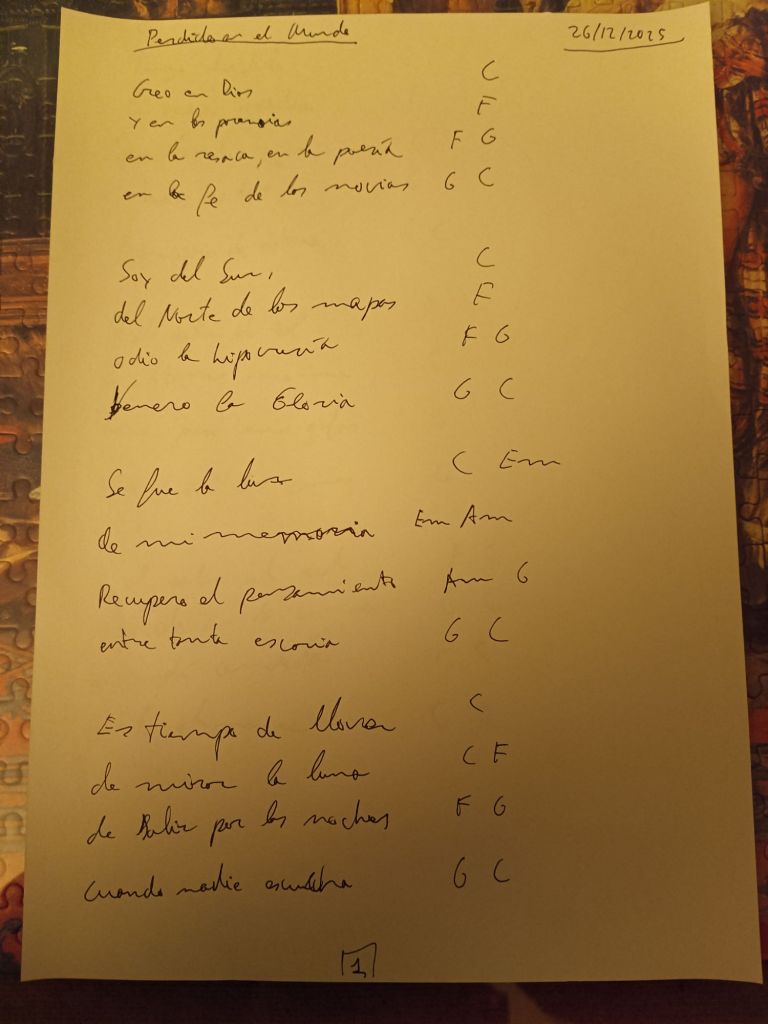 Perdido en el Mundo 26/12/2025
Creo en Dios C
y en los F
en la resaca, en la poesía F G
en la fe de los novias G C
Soy del Sur, C
del Norte de los mapas F
odio la hipocresía F G
Venero la Gloria G C
Se fue la luz C Em
de mi memoria Em Am
Recupero el pensamiento Am G
entre tanta escoria G C
Es tiempo de llorar C
de mirar la luna C F
de por las noches F G
Cuando nadie escucha G C
1